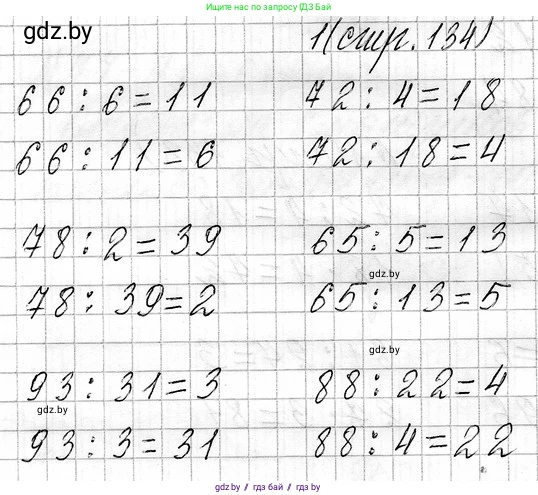 Ищите нас по запросу ГДЗ Бай
gdz.by
1(стр. 134)
66:6=11 72:4=18
66:11=6 72:18=4
78:2=39 65:5=13
gdz.by
78:39=2 65:13=5
gdz.by
93:31=3 88:22=4
gdz.by
93:3=31 88:4=22
gdz.by / гдз бай / гдз by